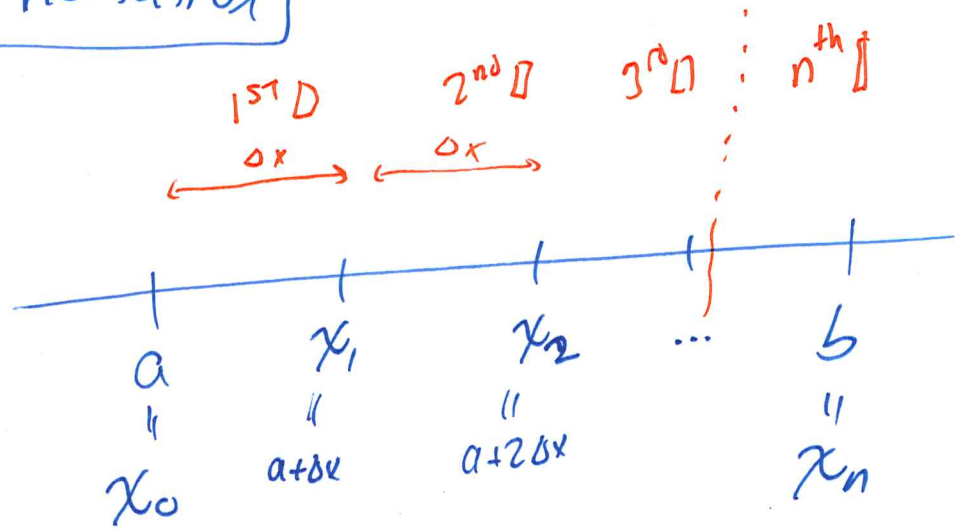 1ST ▯ 2nd ▯ 3rd ▯ ⋮ nth ▯
Δx Δx
a x₁ x₂ ... b
" " " "
x₀ a+Δx a+2Δx xₙ